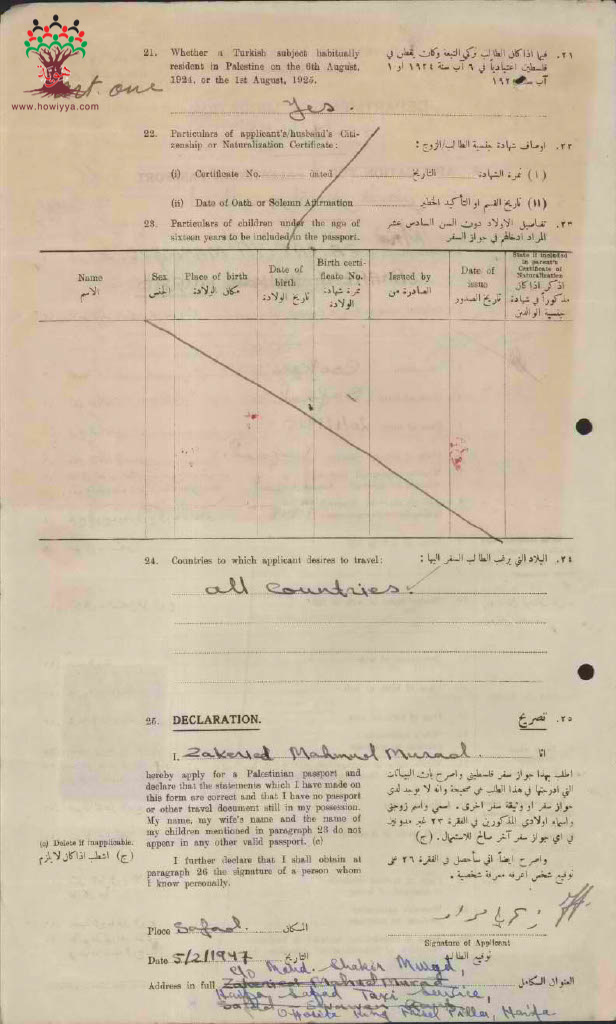 www.howiyya.com
21. Whether a Turkish subject habitually resident in Palestine on the 6th August, 1924, or the 1st August, 1925.
٢١. فيما اذا كان الطالب تركي التبعة وكان يقطن في فلسطين اعتيادياً في ٦ آب سنة ١٩٢٤ او ١ آب سنة
one
Yes.
22. Particulars of applicant's/husband's Citizenship or Naturalization Certificate:
٢٢. اوصاف شهادة جنسية الطالب/الزوج:
(i) Certificate No. dated
(١) نمرة الشهادة. التاريخ
(ii) Date of Oath or Solemn Affirmation
(١١) تاريخ القسم او التأكيد الخطير
23. Particulars of children under the age of sixteen years to be included in the passport.
٢٣. تفاصيل الاولاد دون السن السادس عشر المراد ادخالهم في جواز السفر
Name الاسم
Sex الجنس
Place of birth مكان الولادة
Date of birth تاريخ الولادة
Birth certificate No. نمرة شهادة الولادة
Issued by الصادرة من
Date of issue تاريخ الصدور
State if included in parent's Certificate of Naturalization اذكر اذا كان مذكوراً في شهادة جنسية الوالدين
24. Countries to which applicant desires to travel:
٢٤. البلاد التي يرغب الطالب السفر اليها:
all countries.
25. DECLARATION.
٢٥. تصريح
I, Mahmud Murad
انا
hereby apply for a Palestinian passport and
declare that the statements which I have made on
this form are correct and that I have no passport
or other travel document still in my possession.
My name, my wife's name and the name of
my children mentioned in paragraph 23 do not
appear in any other valid passport. (c)
اطلب بهذا جواز سفر فلسطيني واصرح بان البيانات
التي ادرجتها في هذا الطلب هي صحيحة وانه لا يوجد لدي
جواز سفر او وثيقة سفر اخرى. اسمي واسم زوجتي
واسماء اولادي المذكورين في الفقرة ٢٣ غير مدونين
في اي جواز سفر آخر صالح للاستعمال. (ج)
(c) Delete if inapplicable.
(ج) اشطب اذا كان لا يلزم
I further declare that I shall obtain at
paragraph 26 the signature of a person whom
I know personally.
واصرح ايضاً اني سأحصل في الفقرة ٢٦ على
توقيع شخص اعرفه معرفة شخصية.
Place Safad
المكان
Signature of Applicant
توقيع الطالب
Date 5/2/1947
التاريخ
c/o Mohd. Shakir Murad,
Address in full Mahmud Murad
العنوان الكامل
Haifa Safad Taxi Service,
Safad
Opposite King Pillar, Haifa